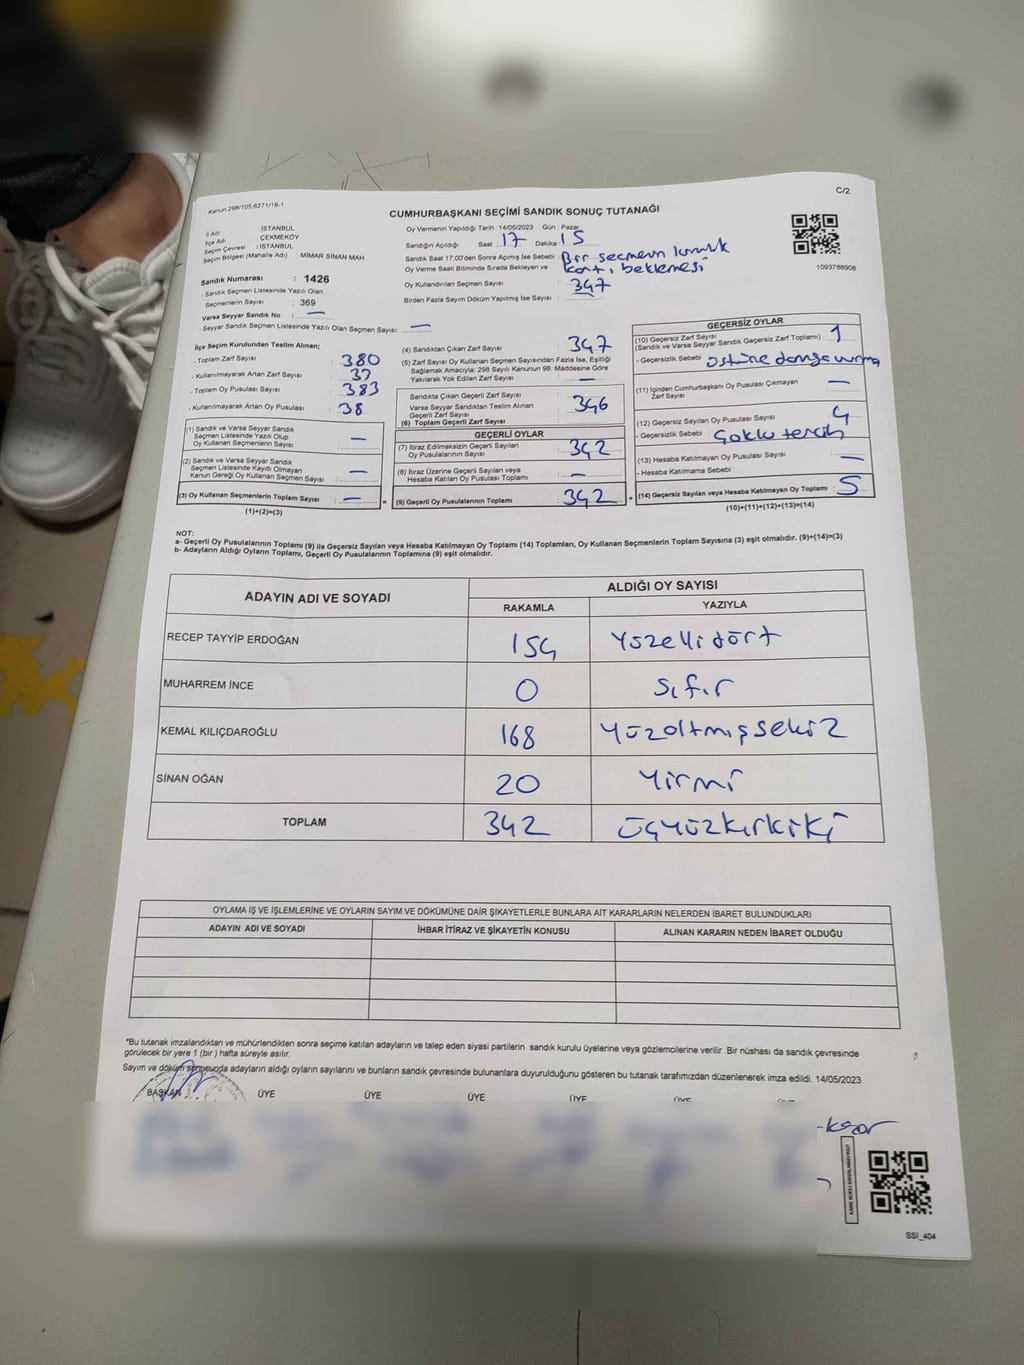 Kanun 298/105,6271/18-1
C/2
CUMHURBAŞKANI SEÇİMİ SANDIK SONUÇ TUTANAĞI
İl Adı : İSTANBUL
İlçe Adı : ÇEKMEKÖY
Seçim Çevresi : İSTANBUL
Seçim Bölgesi (Mahalle Adı) : MİMAR SİNAN MAH.
Sandık Numarası : 1426
- Sandık Seçmen Listesinde Yazılı Olan
Seçmenlerin Sayısı : 369
Varsa Seyyar Sandık No : —
- Seyyar Sandık Seçmen Listesinde Yazılı Olan Seçmen Sayısı : —
Oy Vermenin Yapıldığı Tarih : 14/05/2023 Gün : Pazar
Sandığın Açıldığı Saat : 17 Dakika : 15
Sandık Saat 17.00'den Sonra Açılmış İse Sebebi : Bir seçmenin kimlik
Oy Verme Saati Bitiminde Sırada Bekleyen ve kartı beklemesi
Oy Kullandırılan Seçmen Sayısı : 347
Birden Fazla Sayım Döküm Yapılmış İse Sayısı :
1093788908
İlçe Seçim Kurulundan Teslim Alınan;
- Toplam Zarf Sayısı : 380
- Kullanılmayarak Artan Zarf Sayısı : 33
- Toplam Oy Pusulası Sayısı : 383
- Kullanılmayarak Artan Oy Pusulası : 38
(1) Sandık ve Varsa Seyyar Sandık
Seçmen Listesinde Yazılı Olup
Oy Kullanan Seçmenlerin Sayısı : —
(2) Sandık ve Varsa Seyyar Sandık
Seçmen Listesinde Kayıtlı Olmayan
Kanun Gereği Oy Kullanan Seçmen Sayısı : —
(3) Oy Kullanan Seçmenlerin Toplam Sayısı : — =
(1)+(2)=(3)
(4) Sandıktan Çıkan Zarf Sayısı : 347
(5) Zarf Sayısı Oy Kullanan Seçmen Sayısından Fazla İse, Eşitliği
Sağlamak Amacıyla; 298 Sayılı Kanunun 98. Maddesine Göre
Yakılarak Yok Edilen Zarf Sayısı : —
Sandıkta Çıkan Geçerli Zarf Sayısı
Varsa Seyyar Sandıktan Teslim Alınan
Geçerli Zarf Sayısı
(6) Toplam Geçerli Zarf Sayısı : 346
GEÇERLİ OYLAR
(7) İtiraz Edilmeksizin Geçerli Sayılan
Oy Pusulalarının Sayısı : 342
(8) İtiraz Üzerine Geçerli Sayılan veya
Hesaba Katılan Oy Pusulası Toplamı : —
(9) Geçerli Oy Pusulalarının Toplamı : 342 +
GEÇERSİZ OYLAR
(10) Geçersiz Zarf Sayısı
(Sandık ve Varsa Seyyar Sandık Geçersiz Zarf Toplamı) : 1
- Geçersizlik Sebebi : üstüne damga vurma
(11) İçinden Cumhurbaşkanı Oy Pusulası Çıkmayan
Zarf Sayısı : —
(12) Geçersiz Sayılan Oy Pusulası Sayısı : 4
- Geçersizlik Sebebi : Çoklu tercih
(13) Hesaba Katılmayan Oy Pusulası Sayısı : —
- Hesaba Katılmama Sebebi :
(14) Geçersiz Sayılan veya Hesaba Katılmayan Oy Toplamı : 5
(10)+(11)+(12)+(13)=(14)
NOT:
a- Geçerli Oy Pusulalarının Toplamı (9) ile Geçersiz Sayılan veya Hesaba Katılmayan Oy Toplamı (14) Toplamları, Oy Kullanan Seçmenlerin Toplam Sayısına (3) eşit olmalıdır. (9)+(14)=(3)
b- Adayların Aldığı Oyların Toplamı, Geçerli Oy Pusulalarının Toplamına (9) eşit olmalıdır.
ADAYIN ADI VE SOYADI
ALDIĞI OY SAYISI
RAKAMLA YAZIYLA
RECEP TAYYİP ERDOĞAN 154 Yüzellidört
MUHARREM İNCE 0 Sıfır
KEMAL KILIÇDAROĞLU 168 Yüzaltmışsekiz
SİNAN OĞAN 20 Yirmi
TOPLAM 342 üçyüzkırkiki
OYLAMA İŞ VE İŞLEMLERİNE VE OYLARIN SAYIM VE DÖKÜMÜNE DAİR ŞİKAYETLERLE BUNLARA AİT KARARLARIN NELERDEN İBARET BULUNDUKLARI
ADAYIN ADI VE SOYADI İHBAR İTİRAZ VE ŞİKAYETİN KONUSU ALINAN KARARIN NEDEN İBARET OLDUĞU
*Bu tutanak imzalandıktan ve mühürlendikten sonra seçime katılan adayların ve talep eden siyasi partilerin sandık kurulu üyelerine veya gözlemcilerine verilir. Bir nüshası da sandık çevresinde
görülecek bir yere 1 (bir) hafta süreyle asılır.
Sayım ve döküm sonucunda adayların aldığı oyların sayılarını ve bunların sandık çevresinde bulunanlara duyurulduğunu gösteren bu tutanak tarafımızdan düzenlenerek imza edildi. 14/05/2023
BAŞKAN ÜYE ÜYE ÜYE ÜYE ÜYE
SSI_404